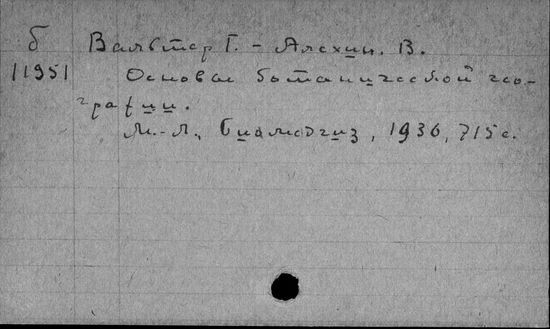 б Вальтер Г. - Алехин. В.
11951 Основы ботанической гео-
графии.
М.-Л., Биомедгиз, 1936, 715 с.